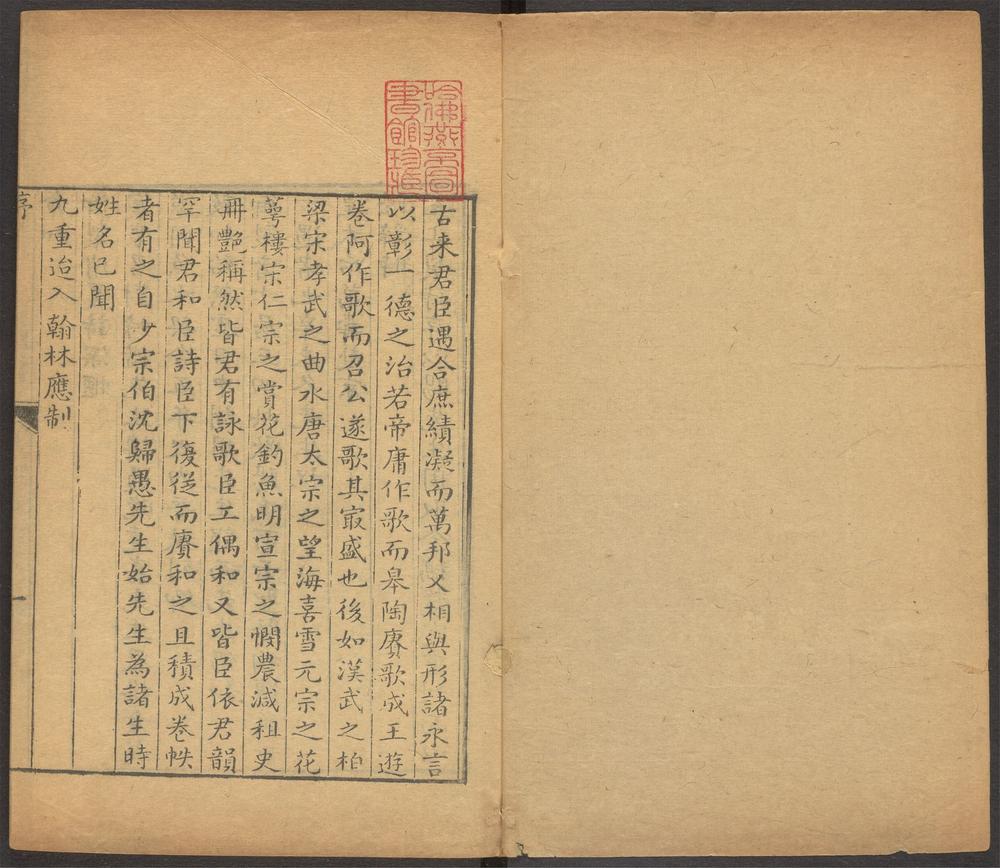 哈佛燕京圖
書館珍藏
古来君臣遇合庶績凝而萬邦乂相與形諸永言
以彰一德之治若帝庸作歌而皋陶賡歌成王遊
卷阿作歌而召公遂歌其冣盛也後如漢武之柏
梁宋孝武之曲水唐太宗之望海喜雪元宗之花
萼樓宋仁宗之賞花釣魚明宣宗之憫農減租史
冊艷稱然皆君有詠歌臣工偶和又皆臣依君韻
罕聞君和臣詩臣下復從而賡和之且積成卷帙
者有之自少宗伯沈歸愚先生始先生為諸生時
姓名已聞
九重迨入翰林應制
序